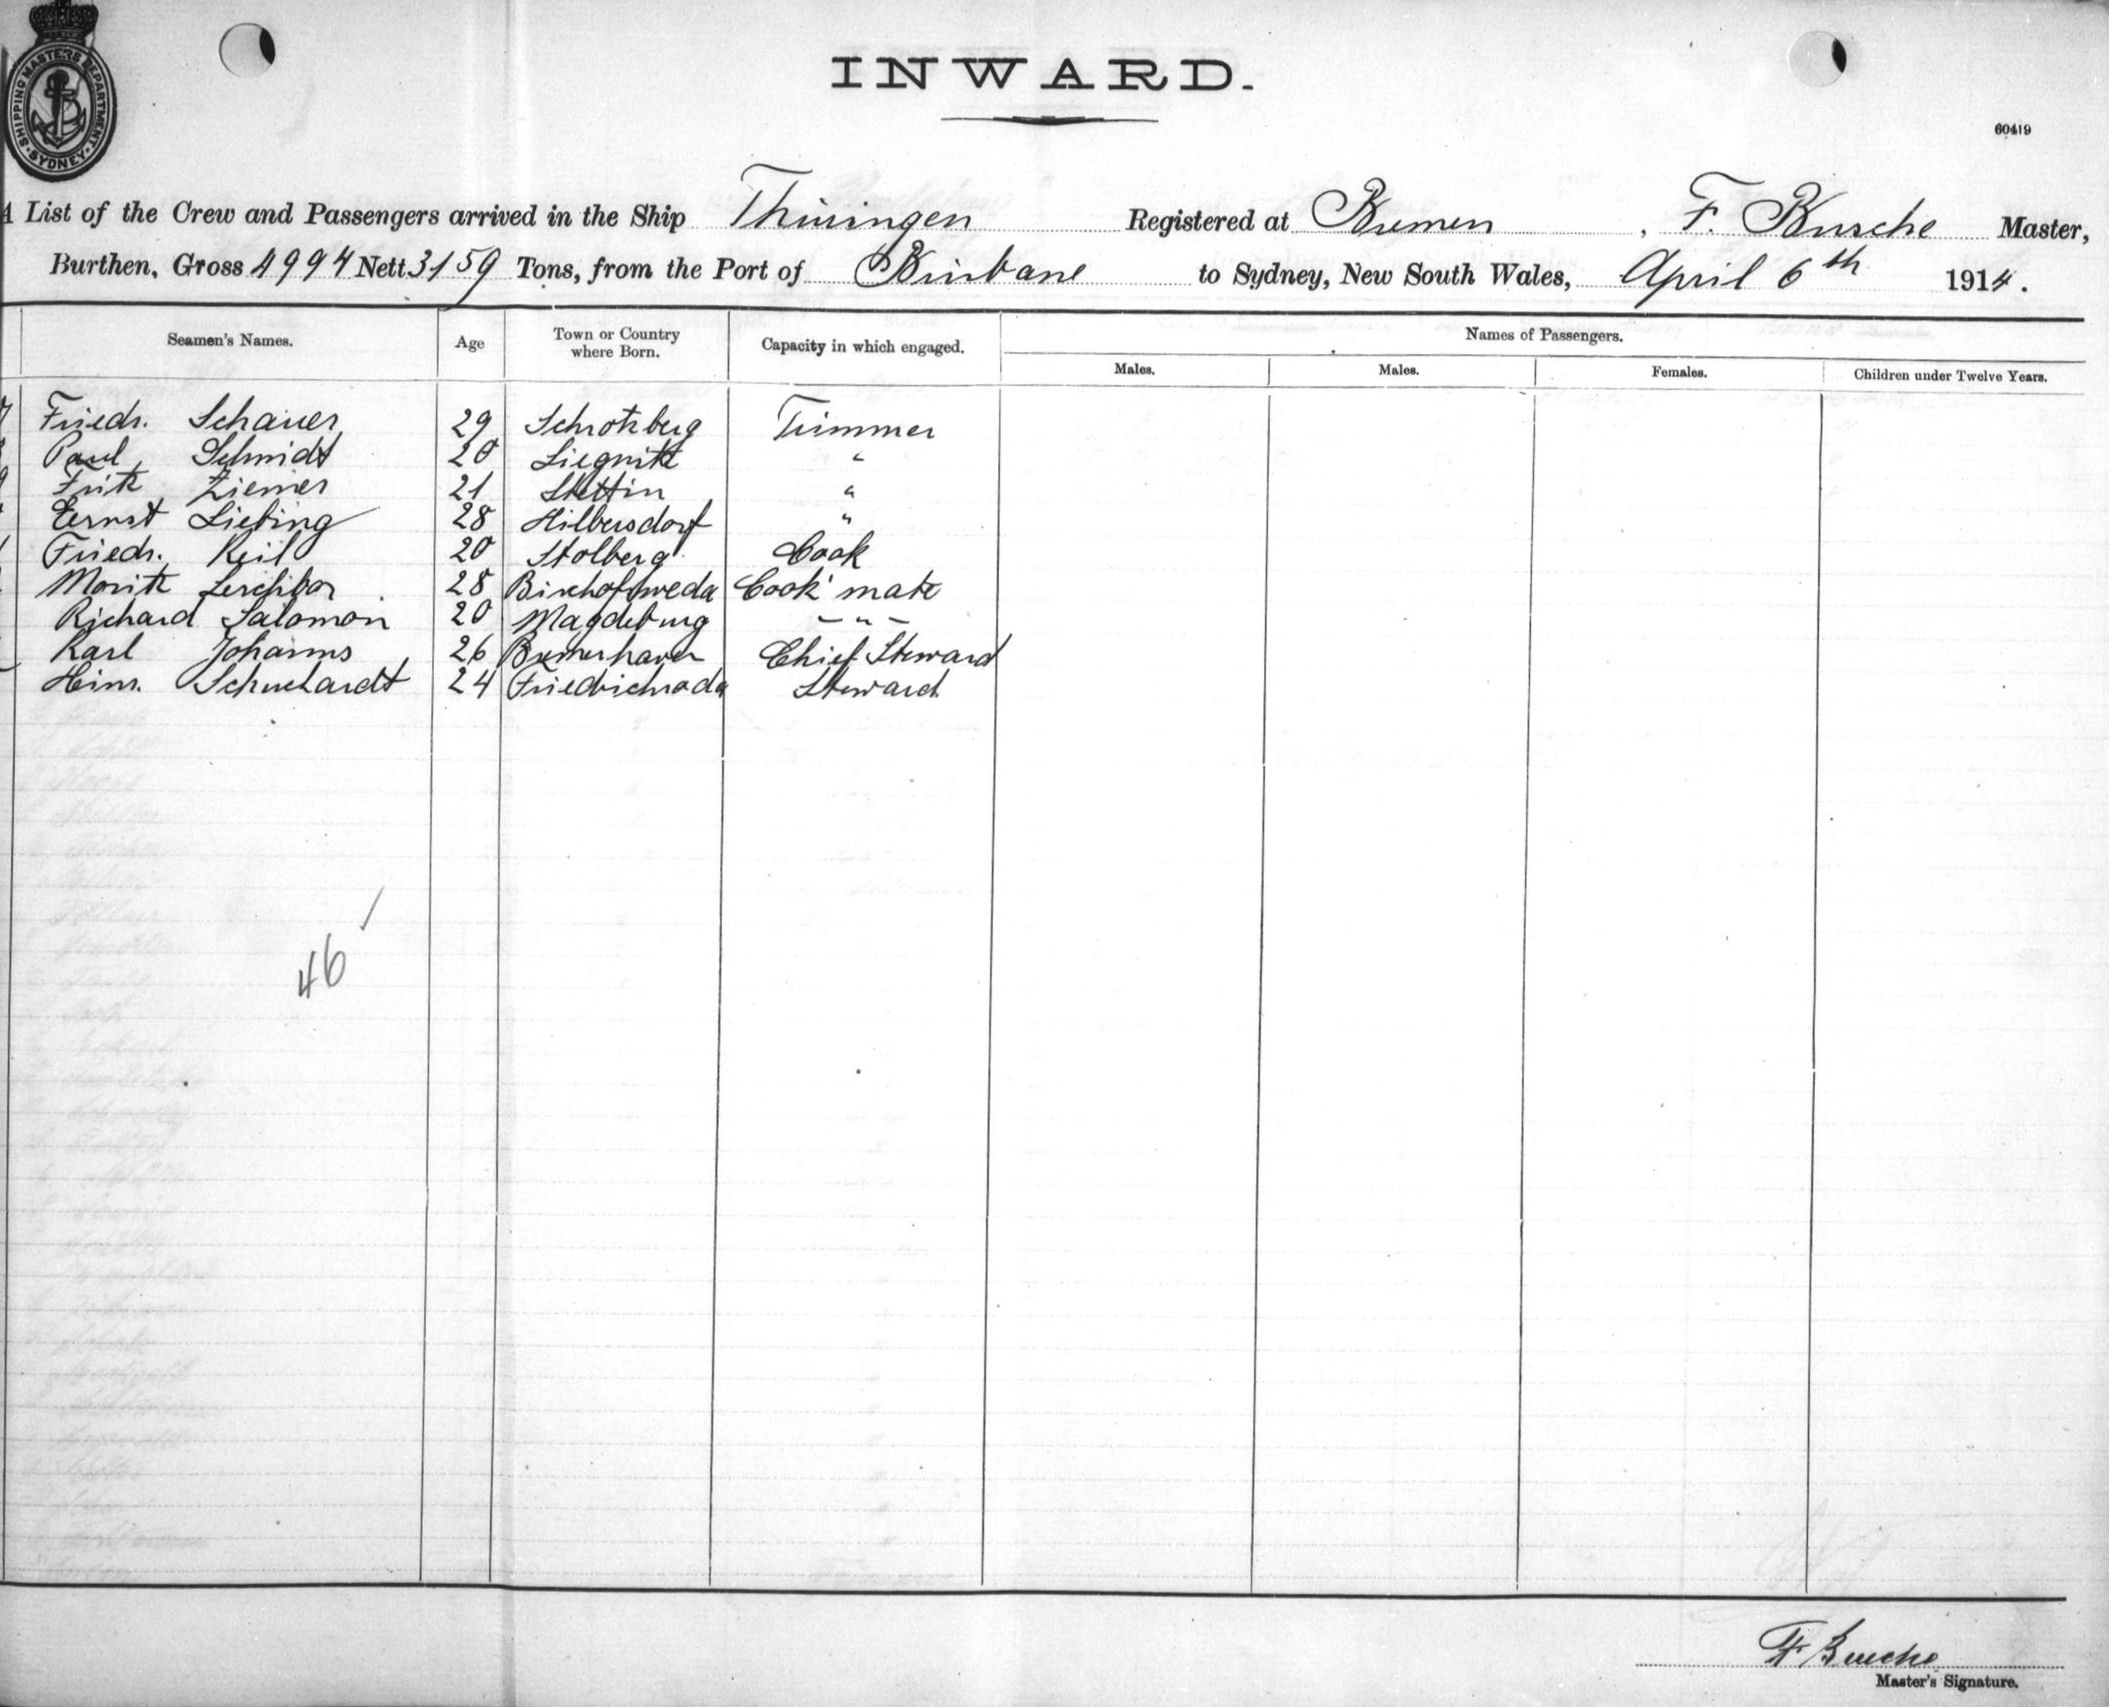 SHIPPING MASTERS DEPARTMENT
SYDNEY
INWARD.
60419
A List of the Crew and Passengers arrived in the Ship Thüringen Registered at Bremen , F. Busche Master,
Burthen, Gross 4994 Nett 3159 Tons, from the Port of Brisbane to Sydney, New South Wales, April 6th 1914.
Seamen's Names. Age Town or Country where Born. Capacity in which engaged. Names of Passengers.
Males. Males. Females. Children under Twelve Years.
Friedr. Schauer 29 Schrotzberg Trimmer
Paul Schmidt 20 Liegnitz "
Fritz Ziemer 21 Stettin "
Ernst Liebing 28 Hilbersdorf "
Friedr. Keil 20 Stolberg Cook
Moritz 28 Bischofswerda Cook' mate
Richard Salomon 20 Magdeburg – " –
Karl Johanns 26 Bremerhaven Chief Steward
Hinr. Schuchardt 24 Friedrichroda Steward
46
F Busche
Master's Signature.